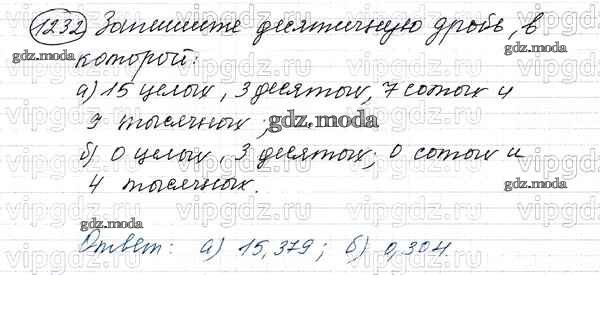 1232 Запишите десятичную дробь, в
которой:
а) 15 целых, 3 десятых, 7 сотых и
9 тысячных;
б) 0 целых, 3 десятых, 0 сотых и
4 тысячных.
Ответ: а) 15,379; б) 0,304.
gdz.moda
gdz.moda
gdz.moda
gdz.moda
gdz.moda
gdz.moda
gdz.moda
vipgdz.ru